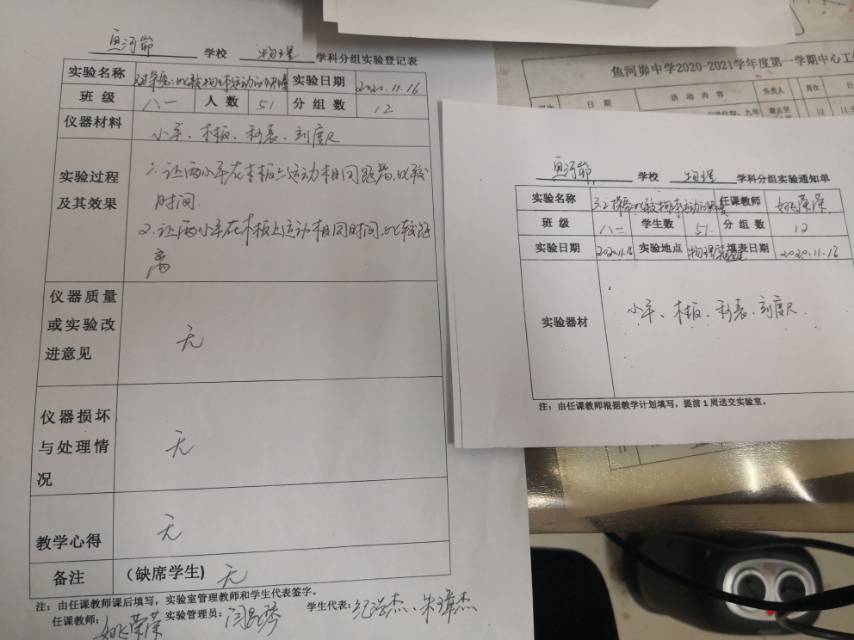 鱼河峁 学校 物理 学科分组实验登记表
实验名称 比较物体运动的快慢 实验日期 2020.11.16
班级 八一 人数 51 分组数 12
仪器材料 小车、木板、秒表、刻度尺
实验过程及其效果
1.让两小车在木板上运动相同路程,比较
时间.
2.让两小车在木板上运动相同时间,比较距
离
仪器质量
或实验改
进意见
无
仪器损坏
与处理情
况
无
教学心得 无
备注 (缺席学生) 无
注:由任课教师课后填写,实验室管理教师和学生代表签字。
任课教师: 姚荣荣 实验管理员: 学生代表:
鱼河峁中学2020-2021学年度第一学期中心工
日期 活动内容 负责人 周次
鱼河峁 学校 物理 学科分组实验通知单
实验名称 3.2 比较物体运动的快慢 任课教师 姚荣荣
班级 八二 学生数 51 分组数 12
实验日期 2020.11.16 实验地点 物理实验室 填表日期 2020.11.16
实验器材 小车、木板、秒表、刻度尺
注:由任课教师根据教学计划填写,提前1周送交实验室。